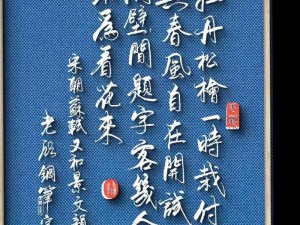 牡丹松檜一時栽付
与春風自在開試
問壁間題字客幾人
不為看花来
宋朝蘇軾又和景文韻
老顔鋼筆字